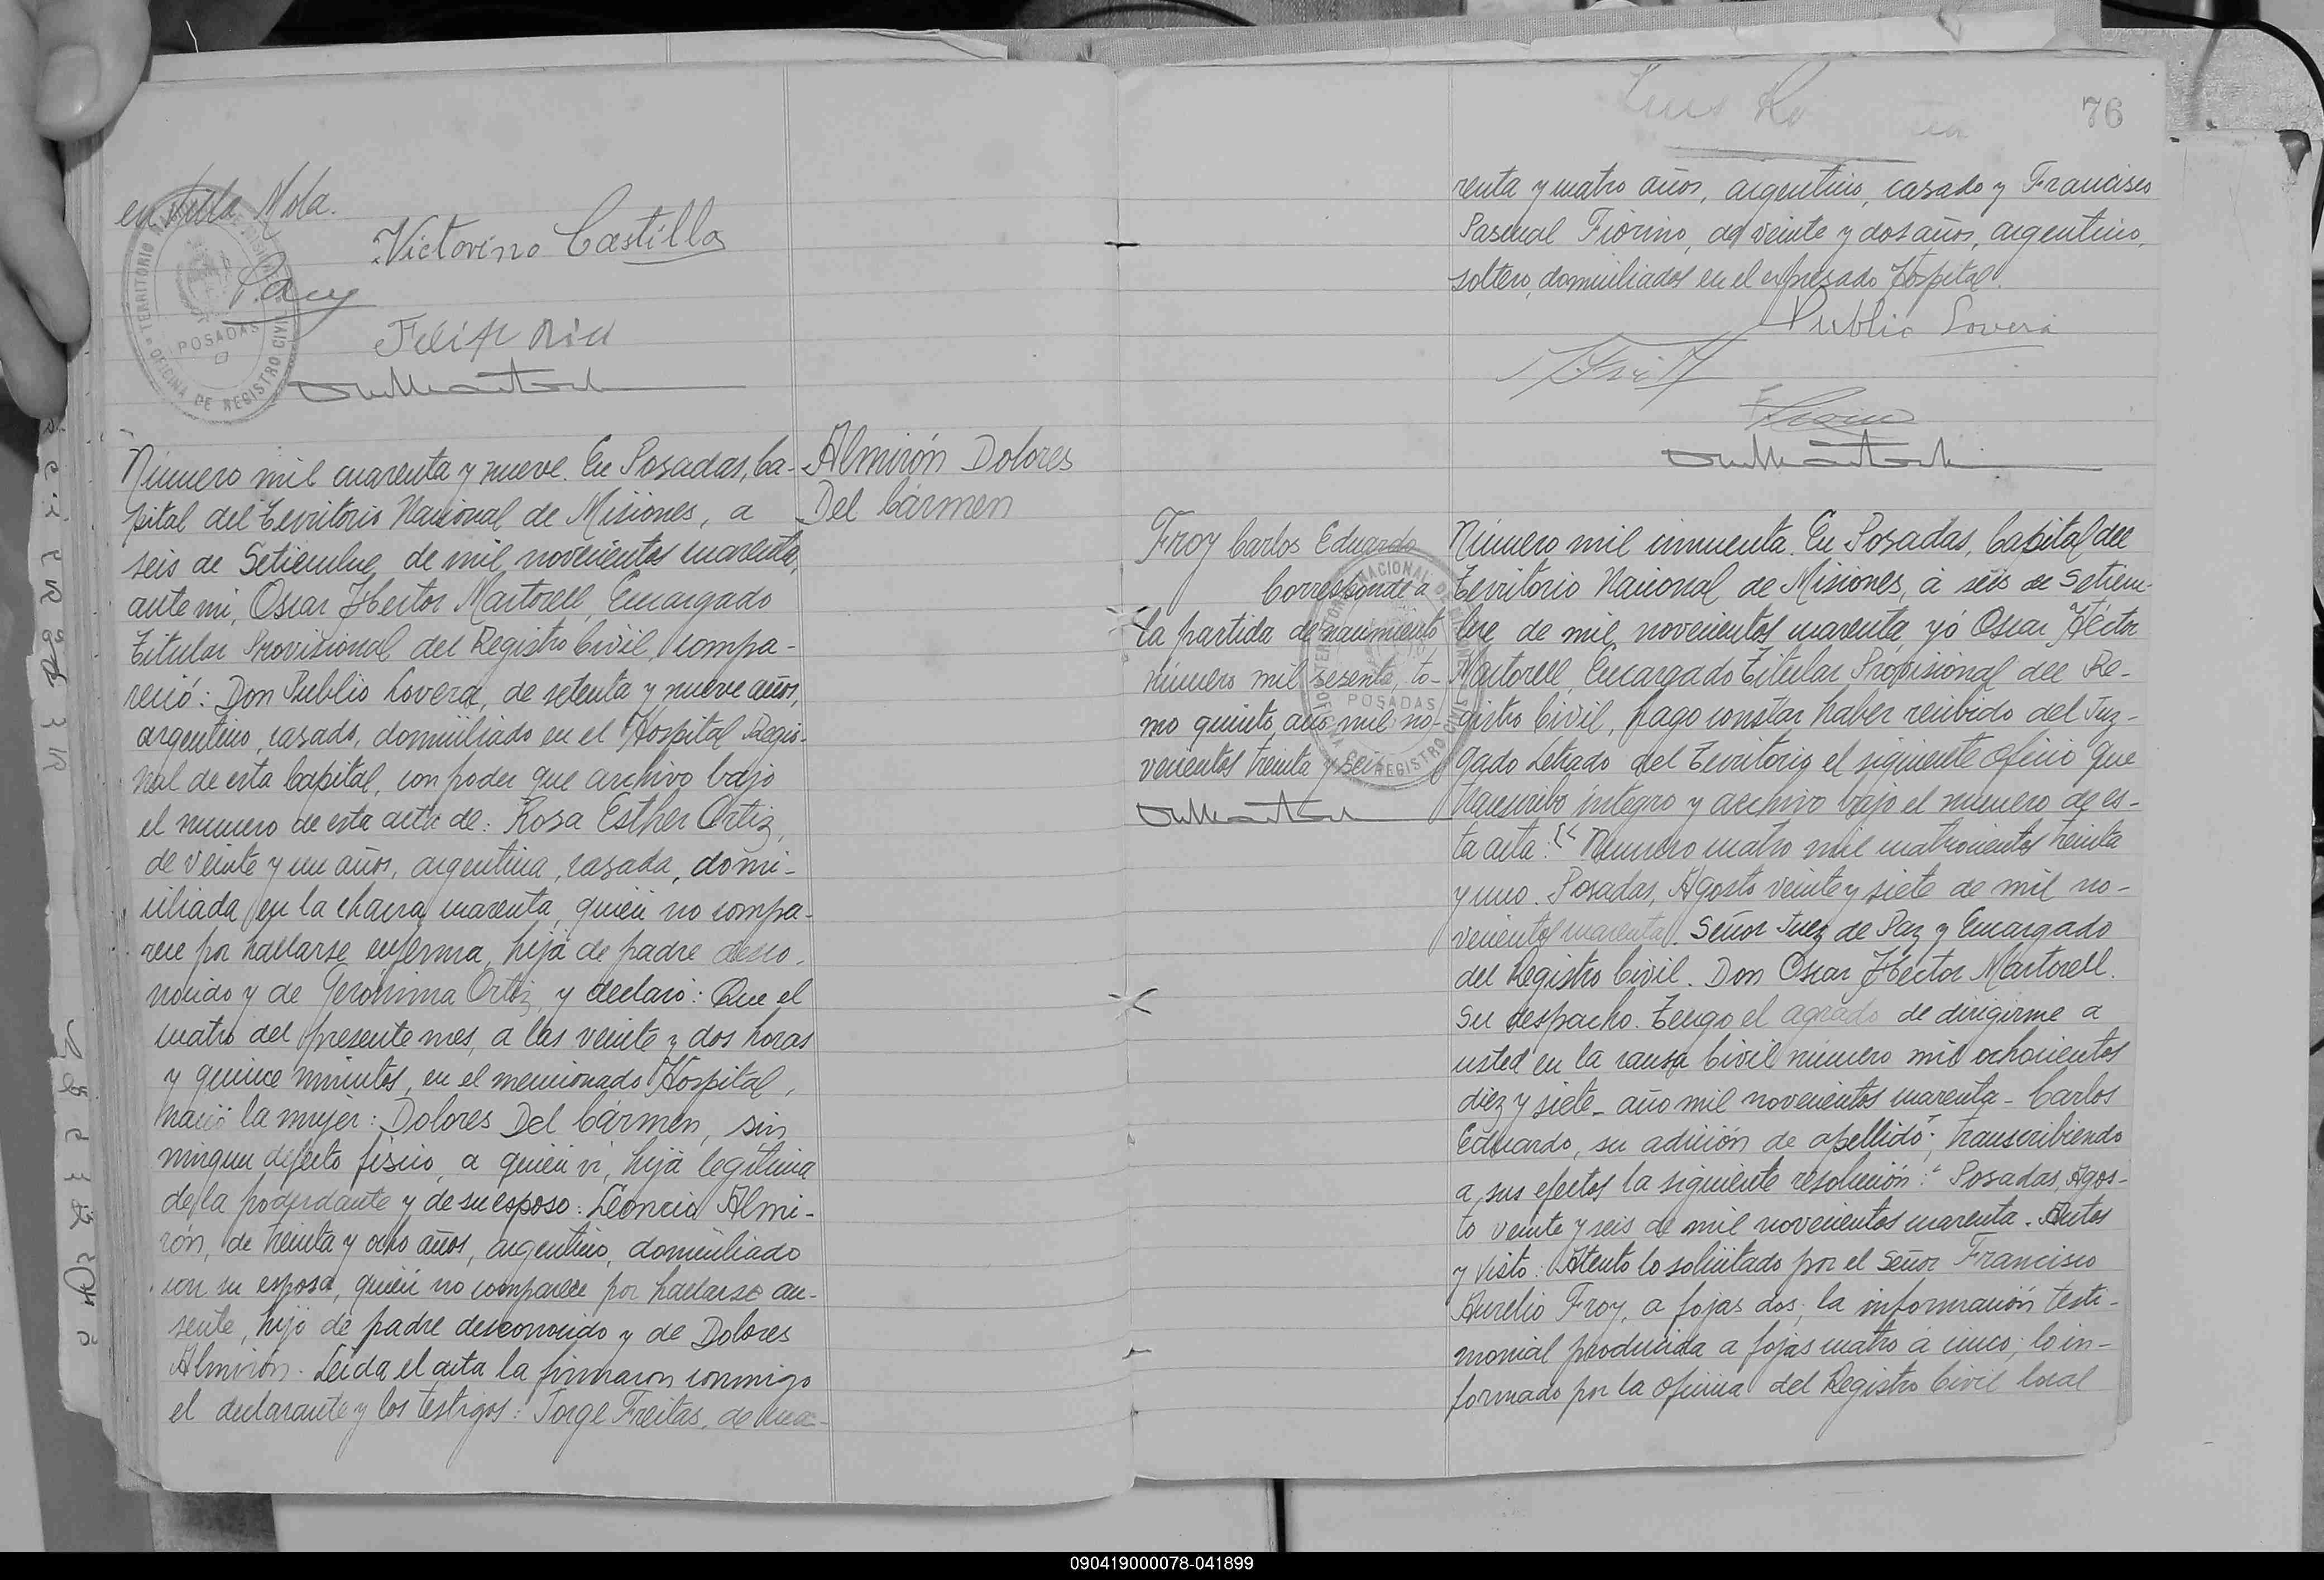 en Villa Mola.
Victorino Castillo
TERRITORIO
POSADAS
OFICINA DE REGISTRO CIVIL
Número mil cuarenta y nueve. En Posadas, Ca-
pital del Territorio Nacional de Misiones, a
seis de Setiembre de mil novecientos cuarenta,
ante mi, Oscar Hector Martorell, Encargado
Titular Provisional del Registro Civil, compa-
reció: Don Publio Lovera, de setenta y nueve años,
argentino, casado, domiciliado en el Hospital Regio-
nal de esta Capital, con poder que archivo bajo
el numero de esta acta de: Rosa Esther Ortiz,
de veinte y un años, argentina, casada, domi-
ciliada en la chacra cuarenta, quién no compa-
rece por hallarse enferma, hija de padre desco-
nocido y de Geronima Ortiz y declaró: Que el
cuatro del presente mes, a las veinte y dos horas
y quince minutos, en el mencionado Hospital,
nació la mujer: Dolores Del Cármen, sin
ningun defecto fisico, a quién vi, hija legitima
de la poderdante y de su esposo: Leoncio Almi-
rón, de treinta y ocho años, argentino, domiciliado
con su esposa, quién no comparece por hallarse au-
sente, hijo de padre desconocido y de Dolores
Almirón. Leida el acta la firmaron conmigo
el declarante y los testigos: Jorge Freitas, de cua-
Almirón Dolores
Del Cármen
76
renta y cuatro años, argentino, casado y Francisco
Pascual Fiorino, de veinte y dos años, argentino,
soltero, domiciliados en el expresado Hospital.
Publio Lovera
Froy Carlos Eduardo
Corresponde a
la partida de nacimiento
número mil sesenta, to-
mo quinto, año mil no-
vecientos treinta y seis
NACIONAL
POSADAS
REGISTRO CIVIL
Número mil cincuenta. En Posadas, Capital del
Territorio Nacional de Misiones, a seis de Setiem-
bre de mil novecientos cuarenta, yó Oscar Héctor
Martorell, Encargado Titular Provisional del Re-
gistro Civil, hago constar haber recibido del Juz-
gado Letrado del Territorio el siguiente oficio que
transcribo integro y archivo bajo el numero de es-
ta acta: "Numero cuatro mil cuatrocientos treinta
y uno. Posadas, Agosto veinte y siete de mil no-
vecientos cuarenta. Señor Juez de Paz y Encargado
del Registro Civil. Don Oscar Héctor Martorell.
Su despacho. Tengo el agrado de dirigirme a
usted en la causa Civil número mil ochocientos
diez y siete - año mil novecientos cuarenta - Carlos
Eduardo, su adición de apellido"; transcribiendo
a sus efectos la siguiente resolución: "Posadas, Agos-
to veinte y seis de mil novecientos cuarenta. Autos
y Visto: Atento lo solicitado por el Señor Francisco
Aurelio Froy, a fojas dos; la información testi-
monial producida a fojas cuatro a cinco; lo in-
formado por la oficina del Registro Civil local
090419000078-041899